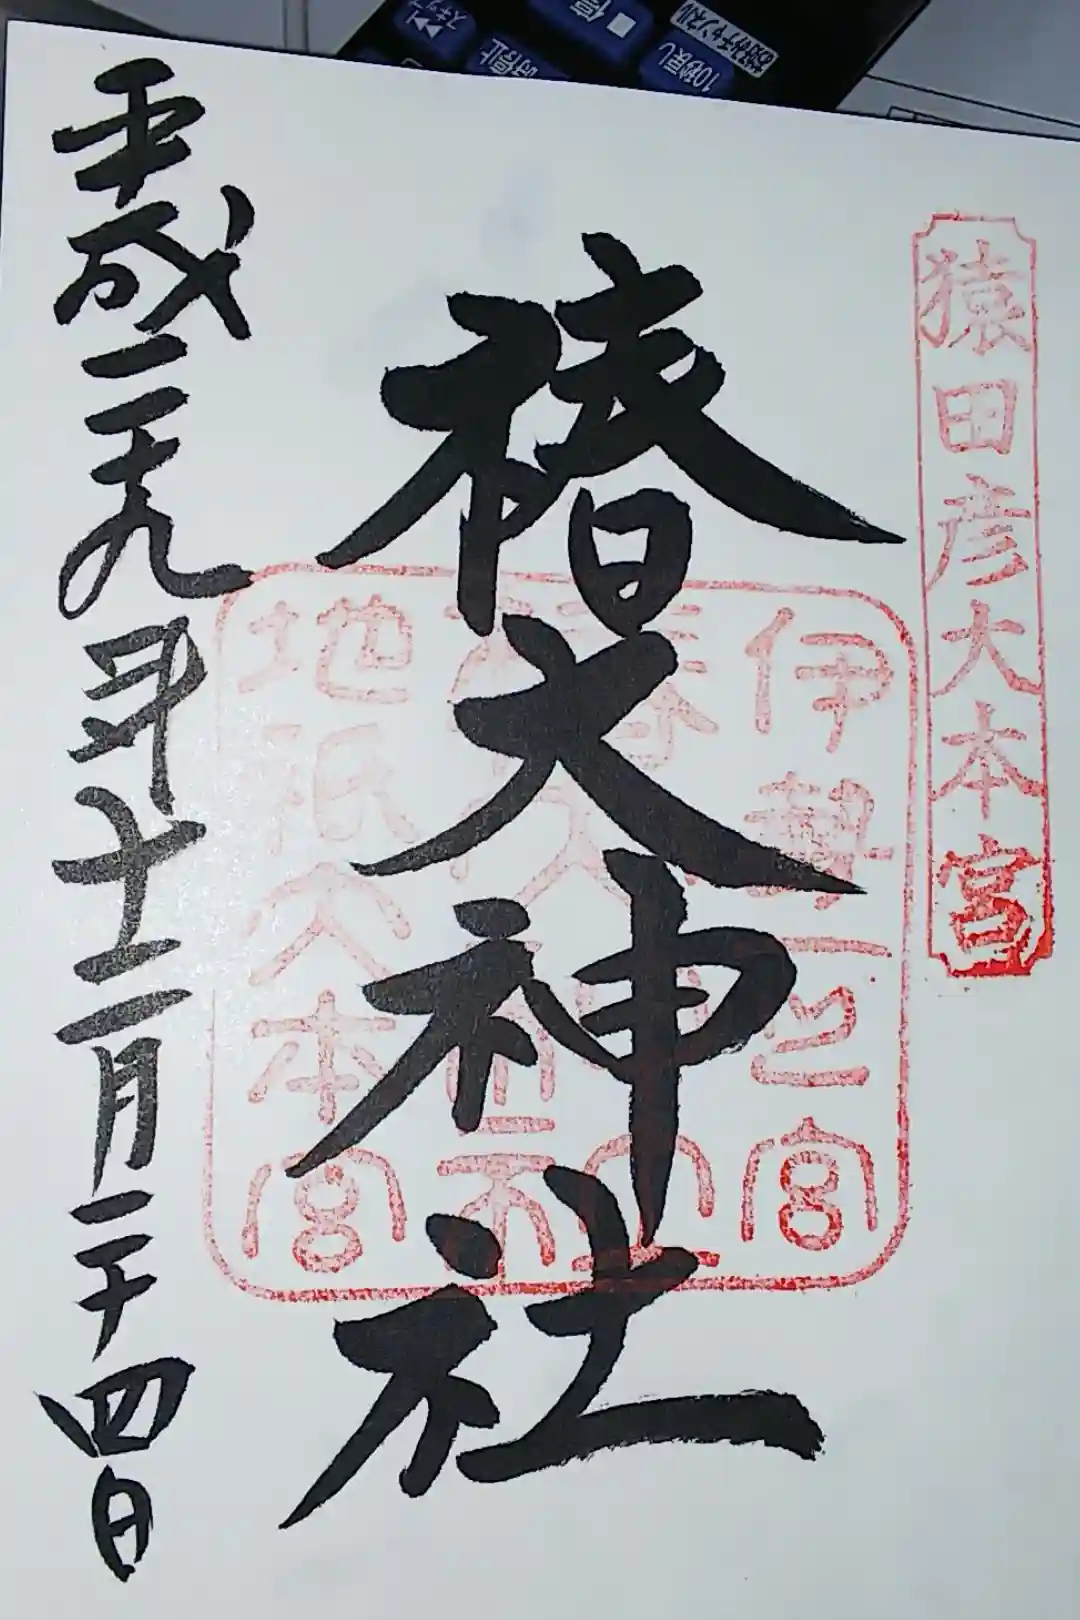 スキップ
時停止
停
10秒戻し
猿田彦大本宮
椿大神社
伊勢一之宮
椿大神社
地祇大本宮
平成二十九年十一月二十四日